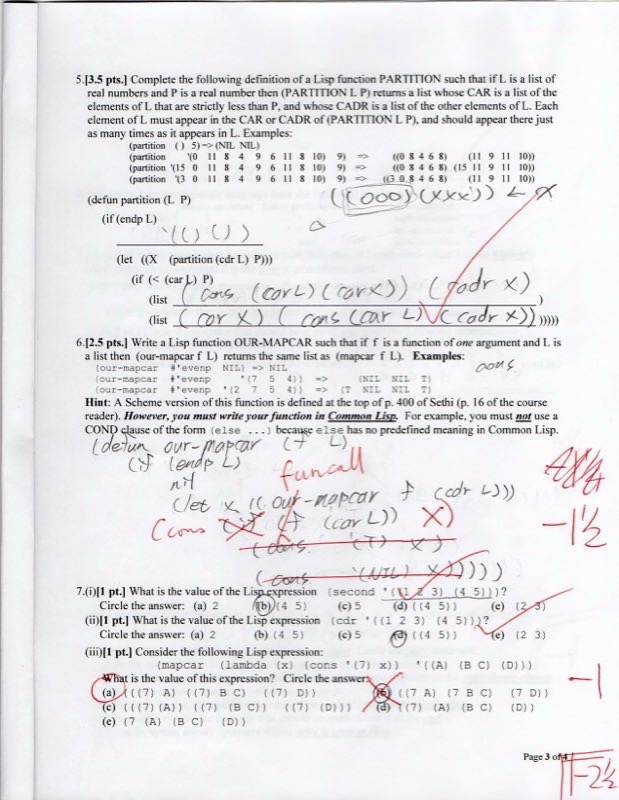 5.[3.5 pts.] Complete the following definition of a Lisp function PARTITION such that if L is a list of
real numbers and P is a real number then (PARTITION L P) returns a list whose CAR is a list of the
elements of L that are strictly less than P, and whose CADR is a list of the other elements of L. Each
element of L must appear in the CAR or CADR of (PARTITION L P), and should appear there just
as many times as it appears in L. Examples:
(partition () 5) => (NIL NIL)
(partition '(0 11 8 4 9 6 11 8 10) 9) => ((0 8 4 6 8) (11 9 11 10))
(partition '(15 0 11 8 4 9 6 11 8 10) 9) => ((0 8 4 6 8) (15 11 9 11 10))
(partition '(3 0 11 8 4 9 6 11 8 10) 9) => ((3 0 8 4 6 8) (11 9 11 10))
(defun partition (L P)
((000)(XXX)) ← X
(if (endp L)
'(() ())
(let ((X (partition (cdr L) P)))
(if (< (car L) P)
(list (cons (car L) (car X)) (cadr X) )
(list (car X) (cons (car L) (cadr X)) )))))
6.[2.5 pts.] Write a Lisp function OUR-MAPCAR such that if f is a function of one argument and L is
a list then (our-mapcar f L) returns the same list as (mapcar f L). Examples:
(our-mapcar #'evenp NIL) => NIL
cons
(our-mapcar #'evenp '(7 5 4)) => (NIL NIL T)
(our-mapcar #'evenp '(2 7 5 4)) => (T NIL NIL T)
Hint: A Scheme version of this function is defined at the top of p. 400 of Sethi (p. 16 of the course
reader). However, you must write your function in Common Lisp. For example, you must not use a
COND clause of the form (else ...) because else has no predefined meaning in Common Lisp.
(defun our-mapcar (f L)
(if (endp L)
funcall
nil
(let x ((our-mapcar f (cdr L)))
(cons (if (f (car L)) X)
-1½
(cons '(T) X)
(cons '(NIL) X)))))
7.(i)[1 pt.] What is the value of the Lisp expression (second '((1 2 3) (4 5)))?
Circle the answer: (a) 2 (b) (4 5) (c) 5 (d) ((4 5)) (e) (2 3)
(ii)[1 pt.] What is the value of the Lisp expression (cdr '((1 2 3) (4 5)))?
Circle the answer: (a) 2 (b) (4 5) (c) 5 (d) ((4 5)) (e) (2 3)
(iii)[1 pt.] Consider the following Lisp expression:
(mapcar (lambda (x) (cons '(7) x)) '((A) (B C) (D)))
What is the value of this expression? Circle the answer:
-1
(a) (((7) A) ((7) B C) ((7) D)) (b) ((7 A) (7 B C) (7 D))
(c) (((7) (A)) ((7) (B C)) ((7) (D))) (d) ((7) (A) (B C) (D))
(e) (7 (A) (B C) (D))
Page 3 of 4
-2½